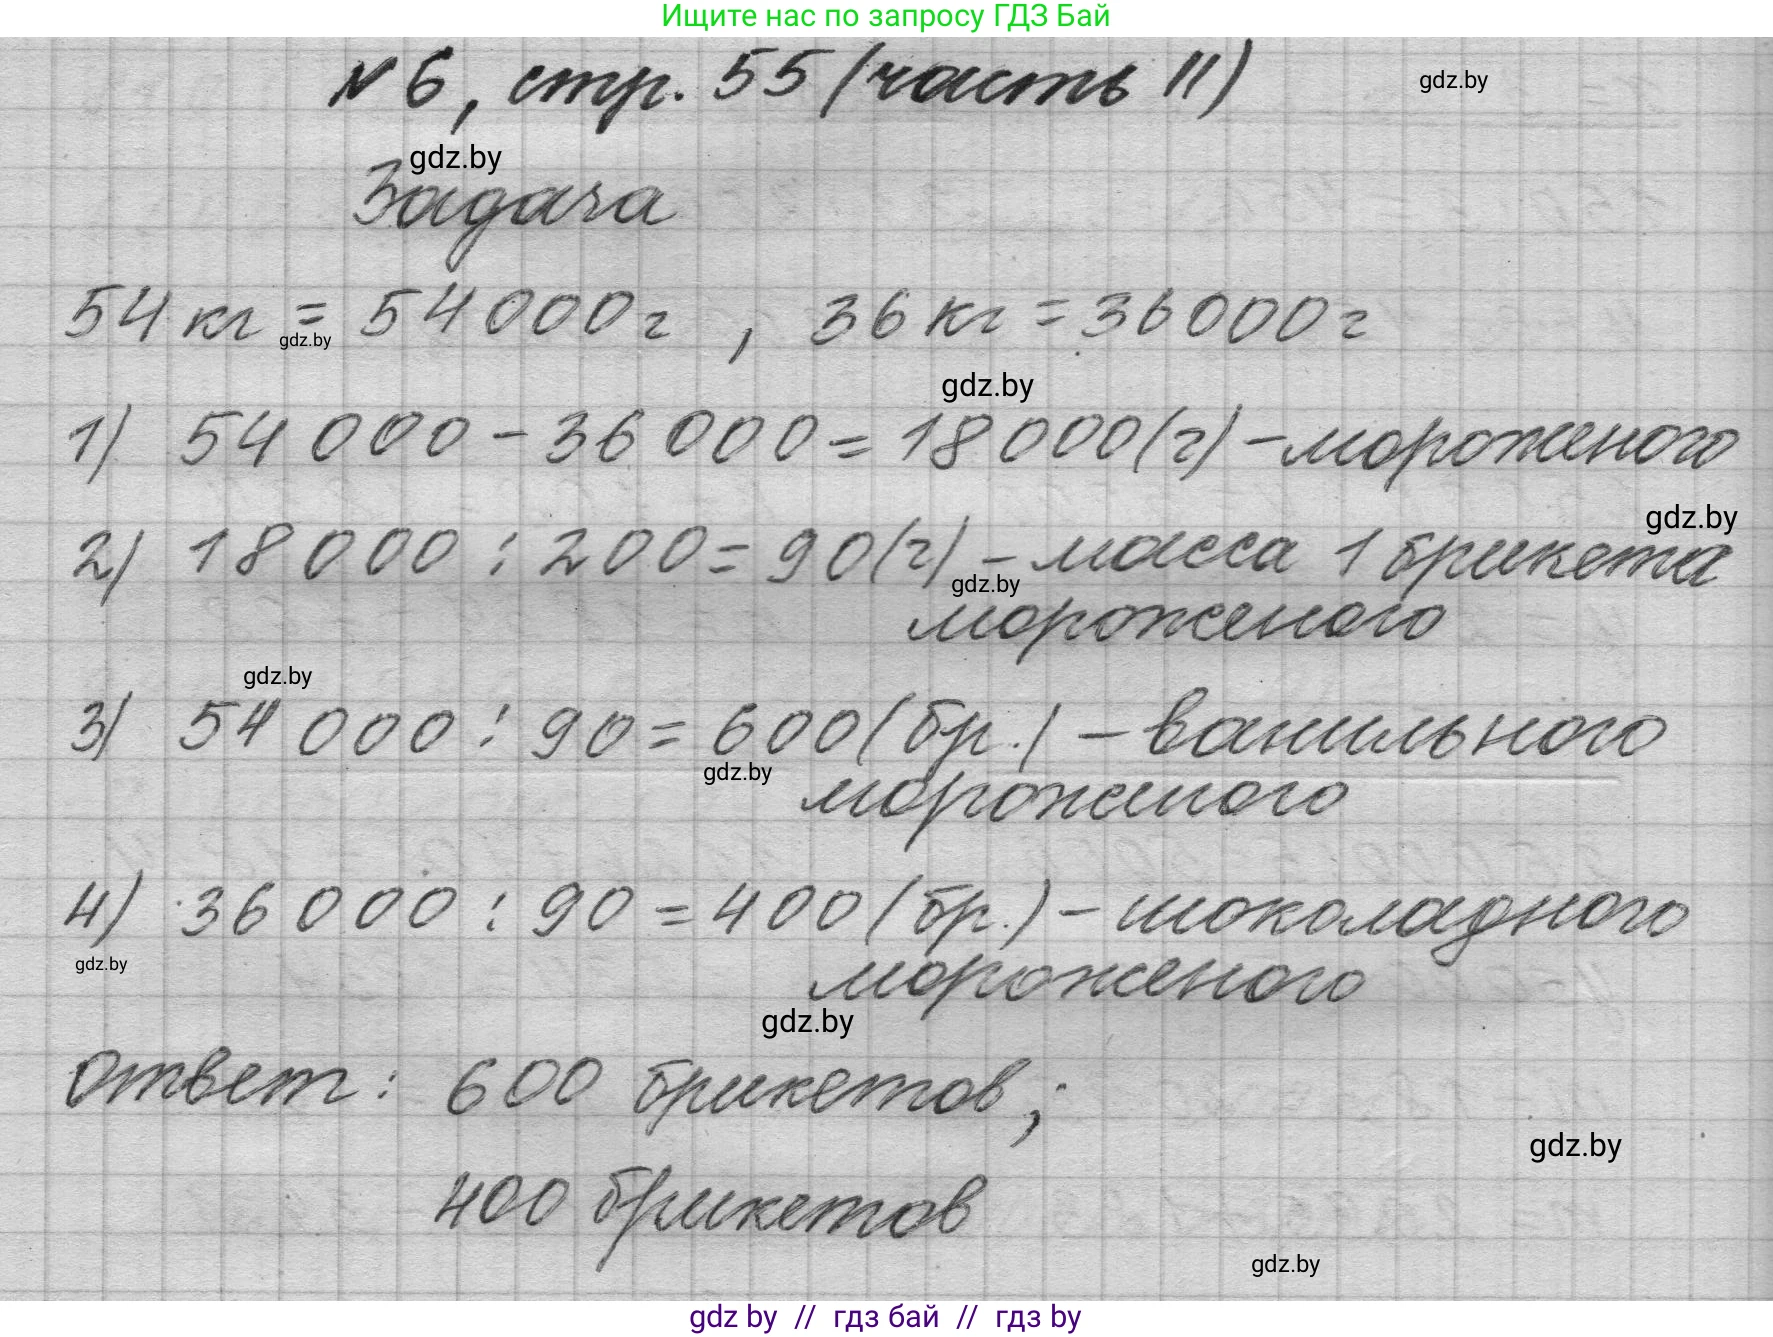 Ищите нас по запросу ГДЗ Бай
№ 6, стр. 55 (часть II)
gdz.by
gdz.by
Задача
54 кг = 54000 г , 36 кг = 36000 г
gdz.by
gdz.by
1) 54 000 - 36 000 = 18 000 (г) - мороженого
gdz.by
2) 18 000 : 200 = 90 (г) - масса 1 брикета
gdz.by
мороженого
gdz.by
3) 54 000 : 90 = 600 (бр.) - ванильного
gdz.by
мороженого
4) 36 000 : 90 = 400 (бр.) - шоколадного
gdz.by
мороженого
gdz.by
Ответ: 600 брикетов;
gdz.by
400 брикетов
gdz.by
gdz by // гдз бай // гдз by